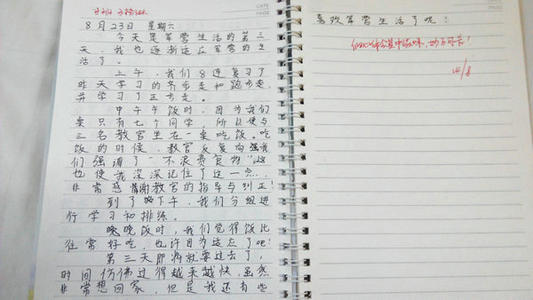 8月23日 星期六
今天是军营生活的第三
天，我也逐渐适应军营的生
活了。
上午，我们8连复习了
昨天学习的齐步走和跑步走，
并学习了正步走。
中午午饭时，因为我们
桌只有七个同学，所以便与
三名教官坐在一桌吃饭。吃
饭的时候，教官反复向我
们强调了“不浪费食物”，这
也使我深深记住了这一点，
非常感谢教官的指导与纠正！
到了下午，我们分组进
行学习和排练。
晚饭时，我们觉得饭比
往常好吃，也许因为适应了吧！
第三天即将就要过去了，
时间仿佛过得越来越快，虽然
非常想回家，但是我还有些
喜欢军营生活了呢！